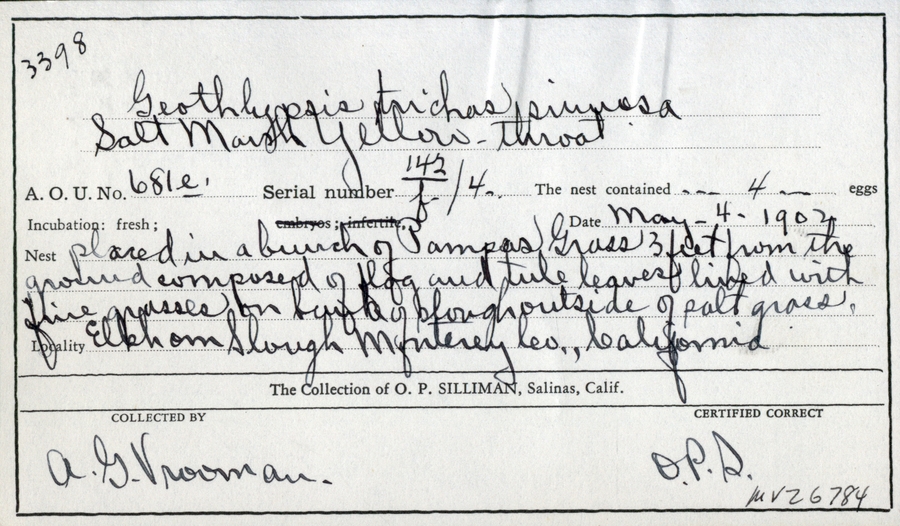 3398
Geothlypsis trichas sinuosa
Salt Marsh Yellow-throat
A. O. U. No. 681e. Serial number 142/f /4. The nest contained --- 4 --- eggs
Incubation: fresh; embryos; infertile, Date May - 4 - 1902
Nest placed in a bunch of Pampas Grass 3 feet from the
ground composed of flag and tule leaves lined with
fine grasses, on bank of slough outside of salt grass.
Locality Elkhorn Slough Monterey Co., California
The Collection of O. P. SILLIMAN, Salinas, Calif.
COLLECTED BY CERTIFIED CORRECT
A. G. Vrooman. O.P.S.
MVZ 6784